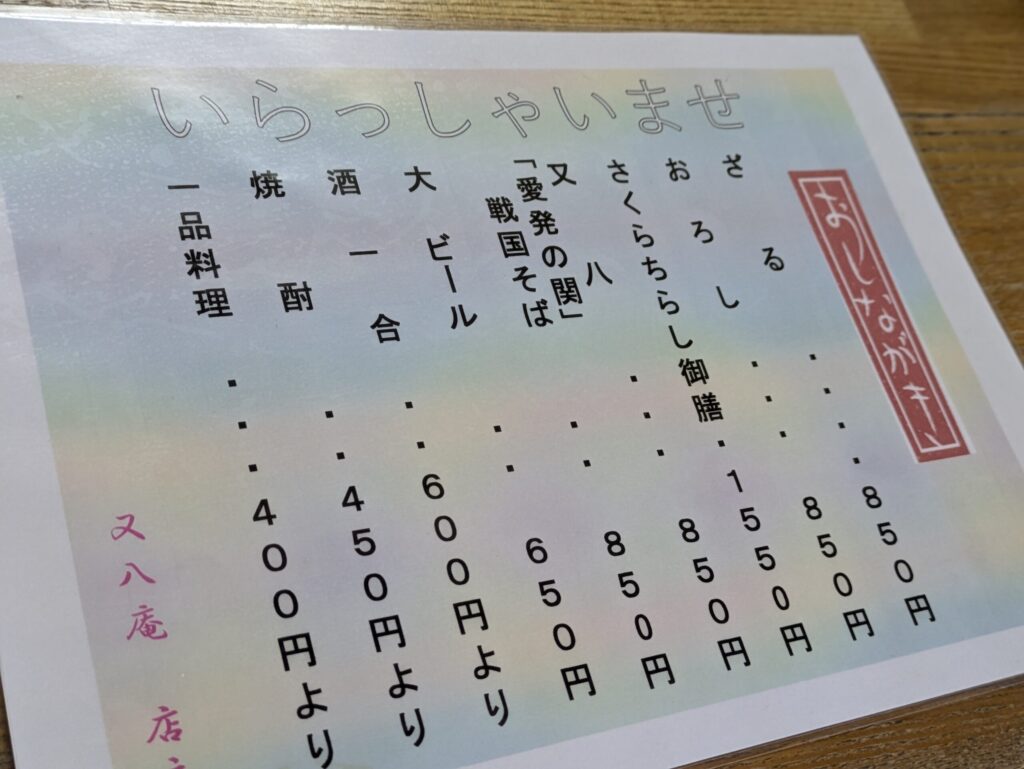 いらっしゃいませ
おしながき
ざる・・・・850円
おろし・・・850円
さくらちらし御膳・1550円
又八・・・850円
「愛発の関」
戦国そば・・850円
大ビール・・650円
酒一合・・600円より
焼酎・・450円より
一品料理・・・400円より
又八庵 店